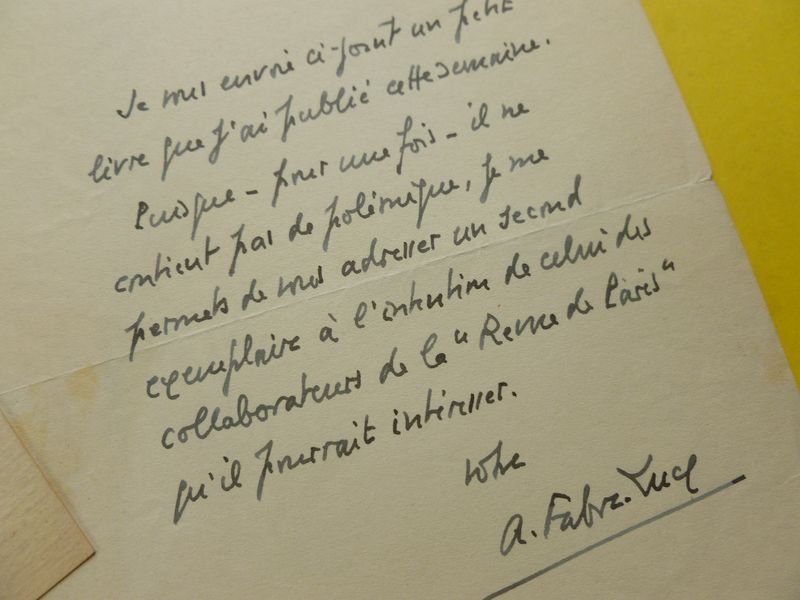 Je vous envoie ci-joint un petit
livre que j'ai publié cette semaine.
Puisque - pour une fois - il ne
contient pas de polémique, je me
permets de vous adresser un second
exemplaire à l'intention de celui des
collaborateurs de la "Revue de Paris"
qu'il pourrait intéresser.
votre
A. Fabre-Luce